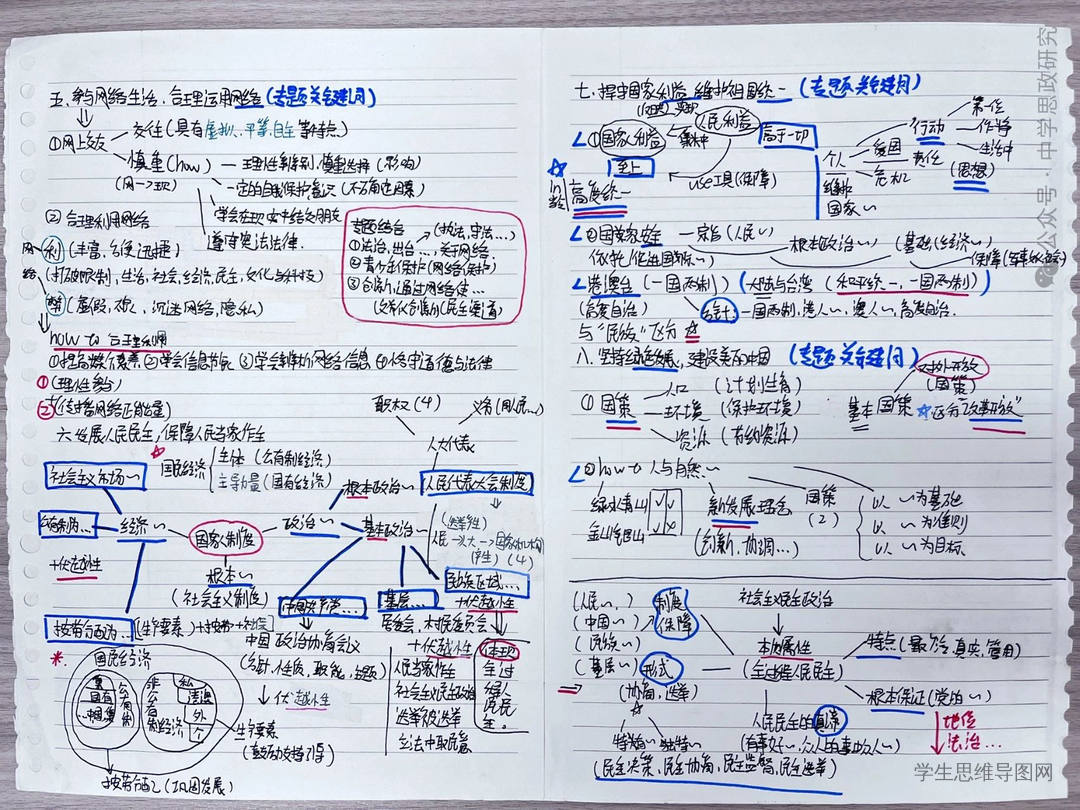 五.参与网络生活,合理运用网络(专题关键词)
①网上交友
交往(具有虚拟、平等、自主等特点)
慎重(how)
理性辨别,慎重选择(影响)
(网→现)
一定的自我保护意识
学会在现实中结交朋友
遵守宪法法律.
②合理利用网络
网络
利(丰富,方便迅捷)
(打破限制,生活,社会,经济,民主,文化与科技)
弊(虚假,烦人,沉迷网络,隐私)
专题结合
(执法,守法...)
①法治,出台...关于网络
②青少年保护(网络保护)
③创新,通过网络使...
how to 合理利用
①提高媒介素养②学会信息节玩③学会辨析网络信息④恪守道德与法律
①(理性参与)
②(传播网络正能量)
六.发展人民民主,保障人民当家作主
职权(4)
义务
人大代表
国民经济
主体(公有制经济)
主导力量(国有经济)
社会主义市场~
根本政治~
人民代表大会制度
公有制为...
经济~
国家制度
政治~
基本政治~
(选举产生)
人民→人大→国家机构
(产生)(4)
+优越性
根本~
(社会主义制度)
中国共产党...
基层...
民族区域...
+优越性
按劳分配为...
(生产要素)
中国政治协商会议
(方针,性质,职能,主题)
↓优越性
居委会,村民委员会
+优越性
人民当家作主
社会主义民主政治
选举被选举
立法中取民意
体现
全过程人民民主.
*.
国民经济
公有制
国有
集
非公有制经济
私
港澳
外
个
生产要素
按劳分配~(巩固发展)
七.捍卫国家利益 维护祖国统一(专题关键词)
∠①国家利益
集中
人民利益
高于一切
至上
use工具(保障)
☆
高度统一
个人
维护
国家~
爱国
危机
责任
行动
第一位
工作中
生活中
(思想)
∠②国家安全
宗旨(人民~)
根本政治~
基础(经济~)
依托/促进国际~
∠港澳台(一国两制)(大陆与台湾(和平统一,一国两制))
(高度自治)
方针:一国两制,港人~,澳人~,高度自治.
与"民族"区分☆
八.坚持绿色发展,建设美丽中国(专题关键词)
①国策
人口(计划生育)
环境(保护环境)
资源(节约资源)
对外开放
(国策)
基本国策
☆区分"改革开放"
∠②how to 人与自然~
绿水青山
金山银山
新发展理念
(创新,协调...)
国策
(2)
以~为基础
以~为准则
以~为目标
(人民~,)
(中国~)
(民族~)
(基层~)
制度
保障
形式
(协商,选举)
社会主义民主政治
本质属性
(全过程人民民主)
特点(最广泛,真实,管用)
根本保证(党的~)
地位
法治...
☆
特有~独特~
人民民主的真谛
(有事好~,众人的事由众人~)
(民主决策,民主协商,民主监督,民主选举)
公众号·中学思政研究
学生思维导图网